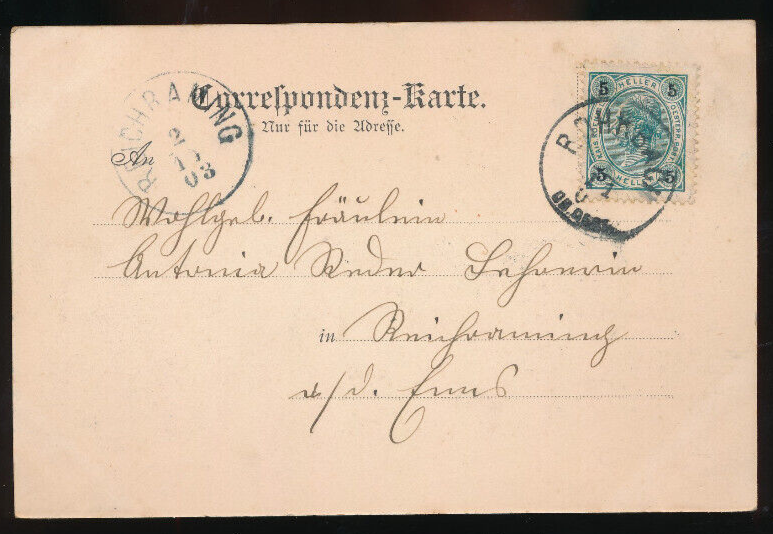 Correspondenz-Karte.
Nur für die Adresse.
REICHRAMING
2
03
5 HELLER 5
5 HELLER 5
An
Wohlgeb. Fräulein
Antonia Reder Lehrerin
in Reichraming
a/d. Enns